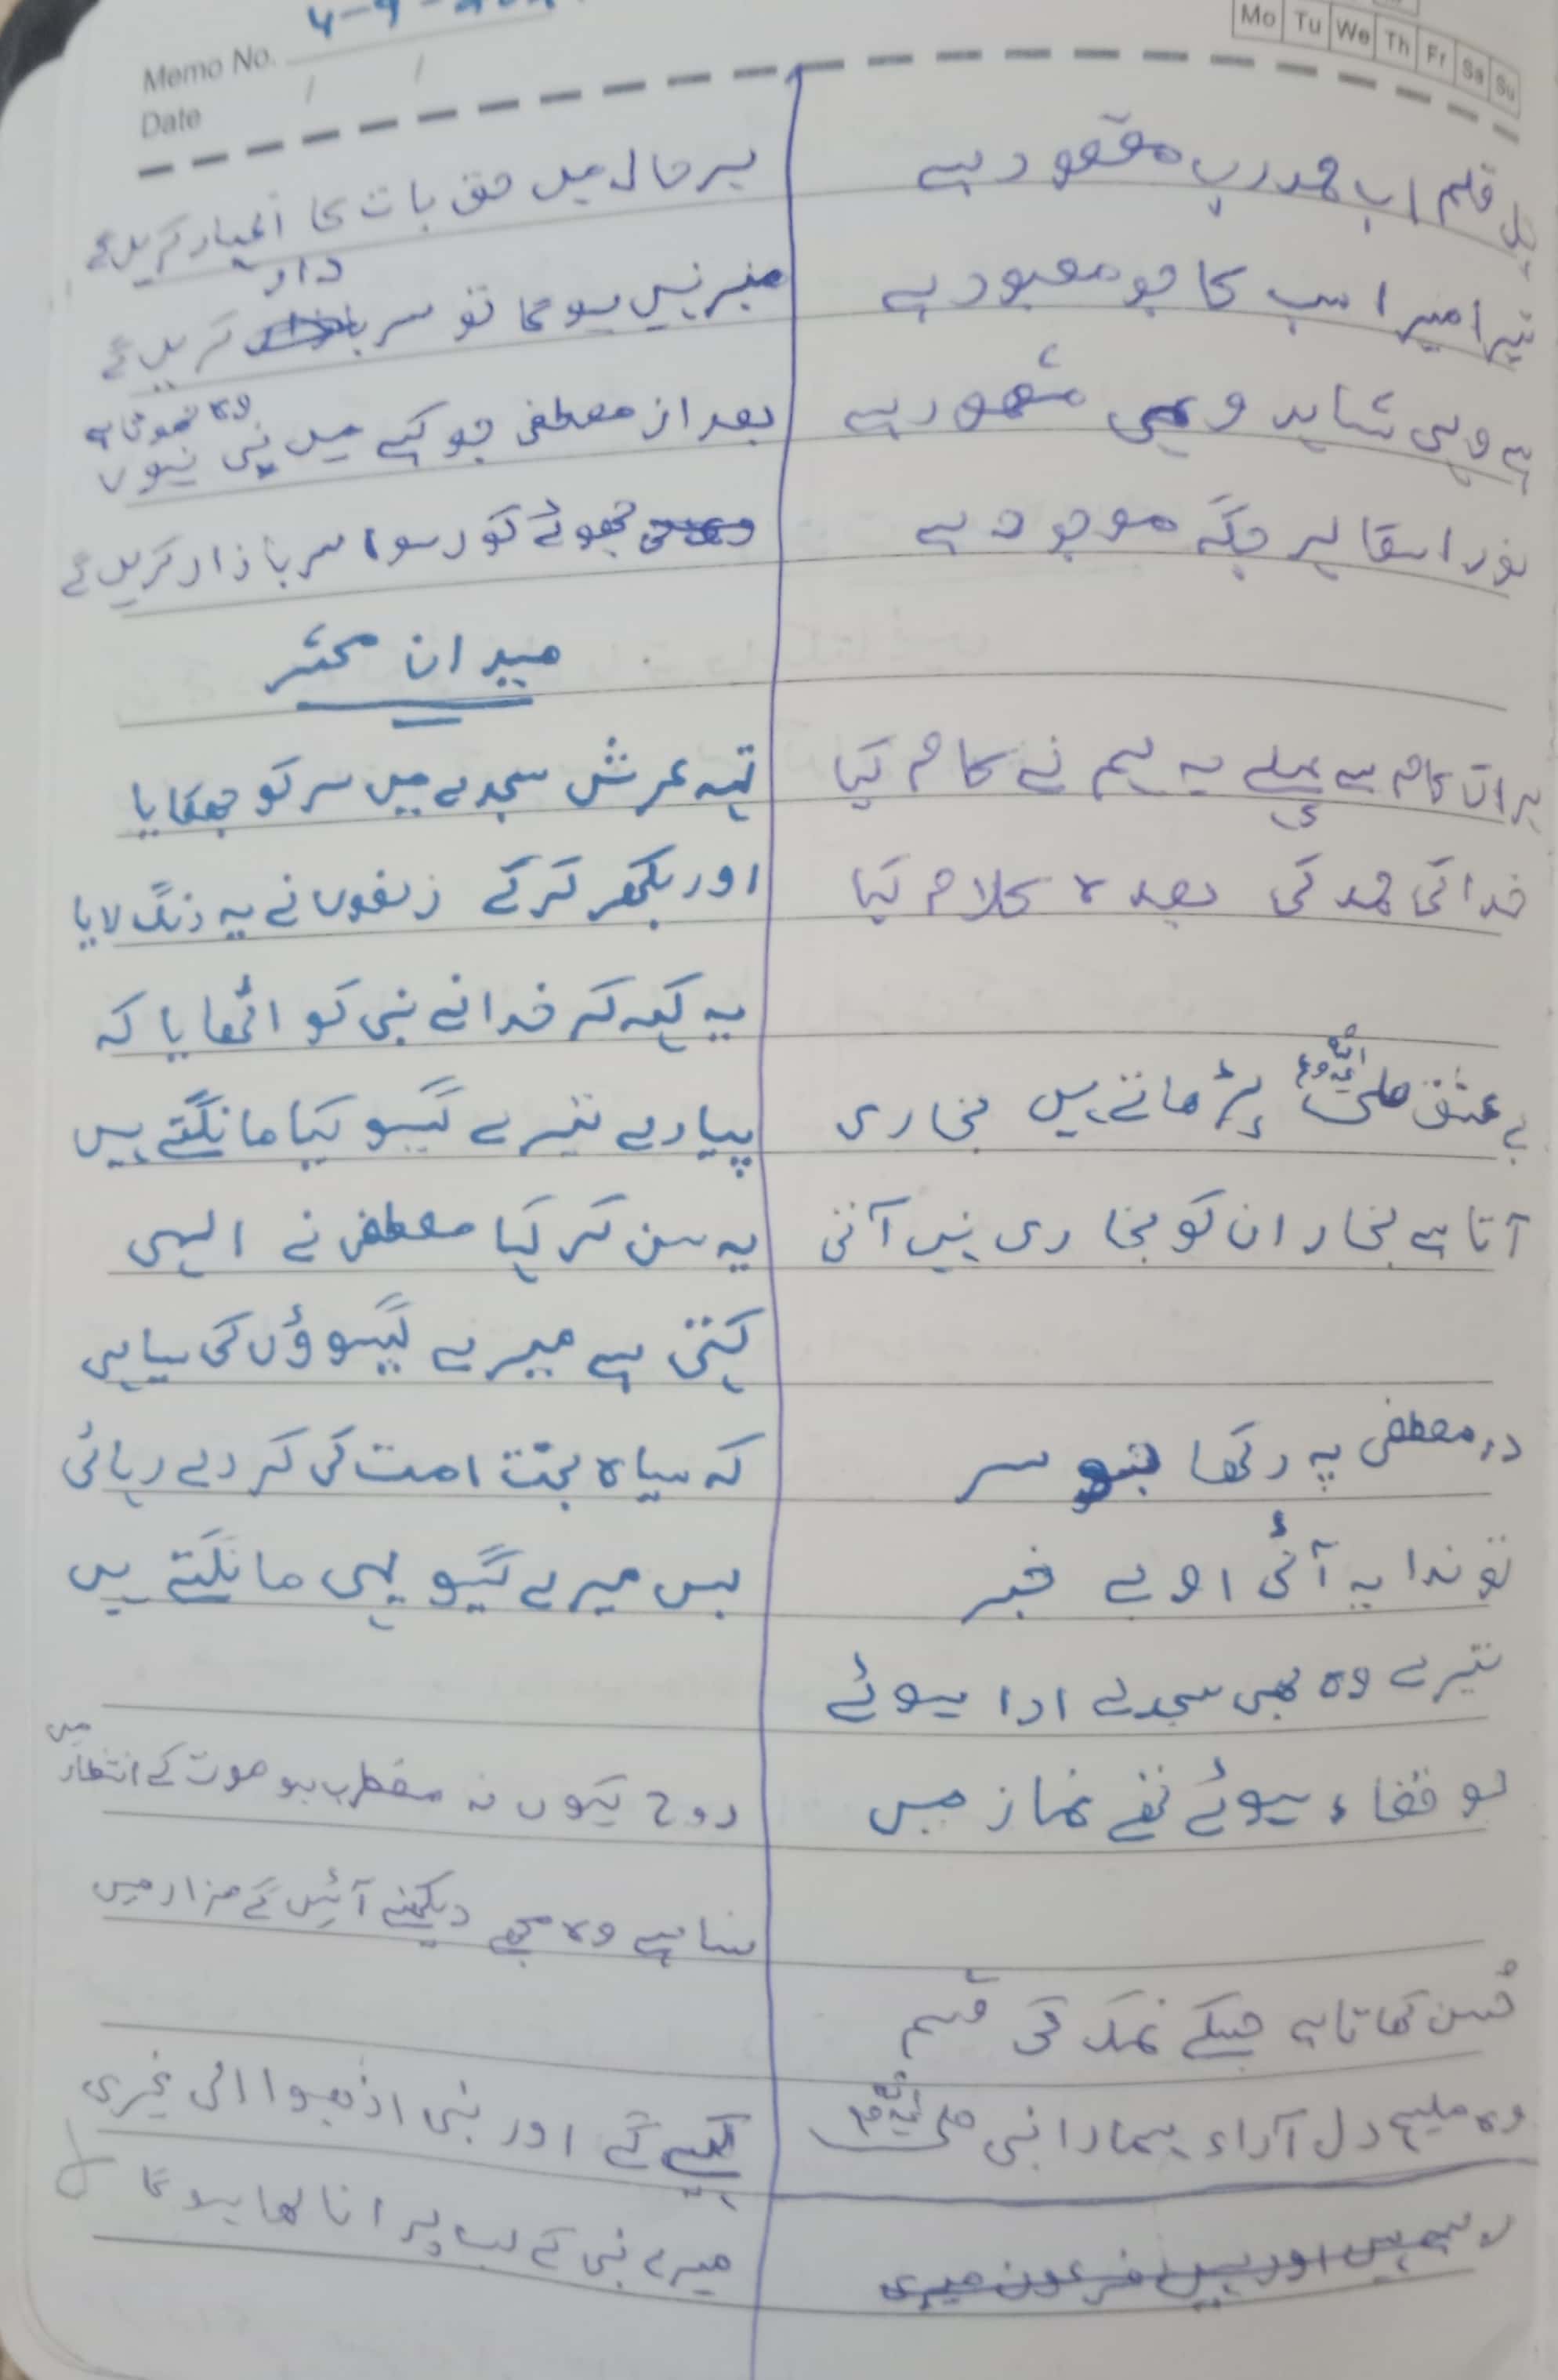 Memo No. 4-9-
Date / /
Mo Tu We Th Fr Sa Su
قلم اب حمد رب مقصود ہے
تیرا میرا سب کا جو معبود ہے
ہے وہی شاہد وہی مشھود ہے
نور اسقا ہر جگہ موجود ہے
ہر اک کام سے پہلے یہ ہم نے کام کیا
خدا کی حمد کی بعدہ کلام کیا
بے عشق صلی اللہ علیہ وسلم پڑھاتے ہیں بخاری
آتا ہے بخار ان کو بخاری نہیں آتی
در مصطفی پہ رکھا جو سر
تو ندا یہ آئی او بے خبر
تیرے وہ بھی سجدے ادا ہوئے
جو قضاء ہوئے تھے نماز میں
حُسن کھاتا ہے جسکے نمک کی قسم
وہ ملیح دل آراء ہمارا نبی صلی اللہ علیہ وسلم
ہر حال میں حق بات کا اظہار کریں گے
منبر نہیں ہوگا تو سر دار کریں گے
بعد از مصطفی جو کہے میں نبی ہوں وہ جھوٹا ہے
جھوٹے کو رسوا سر بازار کریں گے
میدان محشر
تہہ عرش سجدے میں سر کو جھکایا
اور بکھر کرکے زلفوں نے یہ رنگ لایا
یہ کہہ کہ خدا نے نبی کو اٹھایا کہ
پیارے تیرے گیسو کیا مانگتے ہیں
یہ سن کر کہا مصطفی نے الہی
کہتی ہے میرے گیسوؤں کی سیاہی
کہ سیاہ بخت امت کی کر دے رہائی
بس میرے گیسو یہی مانگتے ہیں
روح کیوں نہ مضطرب ہو موت کے انتظار میں
سنا ہے وہ مجھے دیکھنے آئیں گے مزار میں
کہیے گے اور نبی اذھبوا الی غیری
میرے نبی کے لب پر انا لھا ہوگا